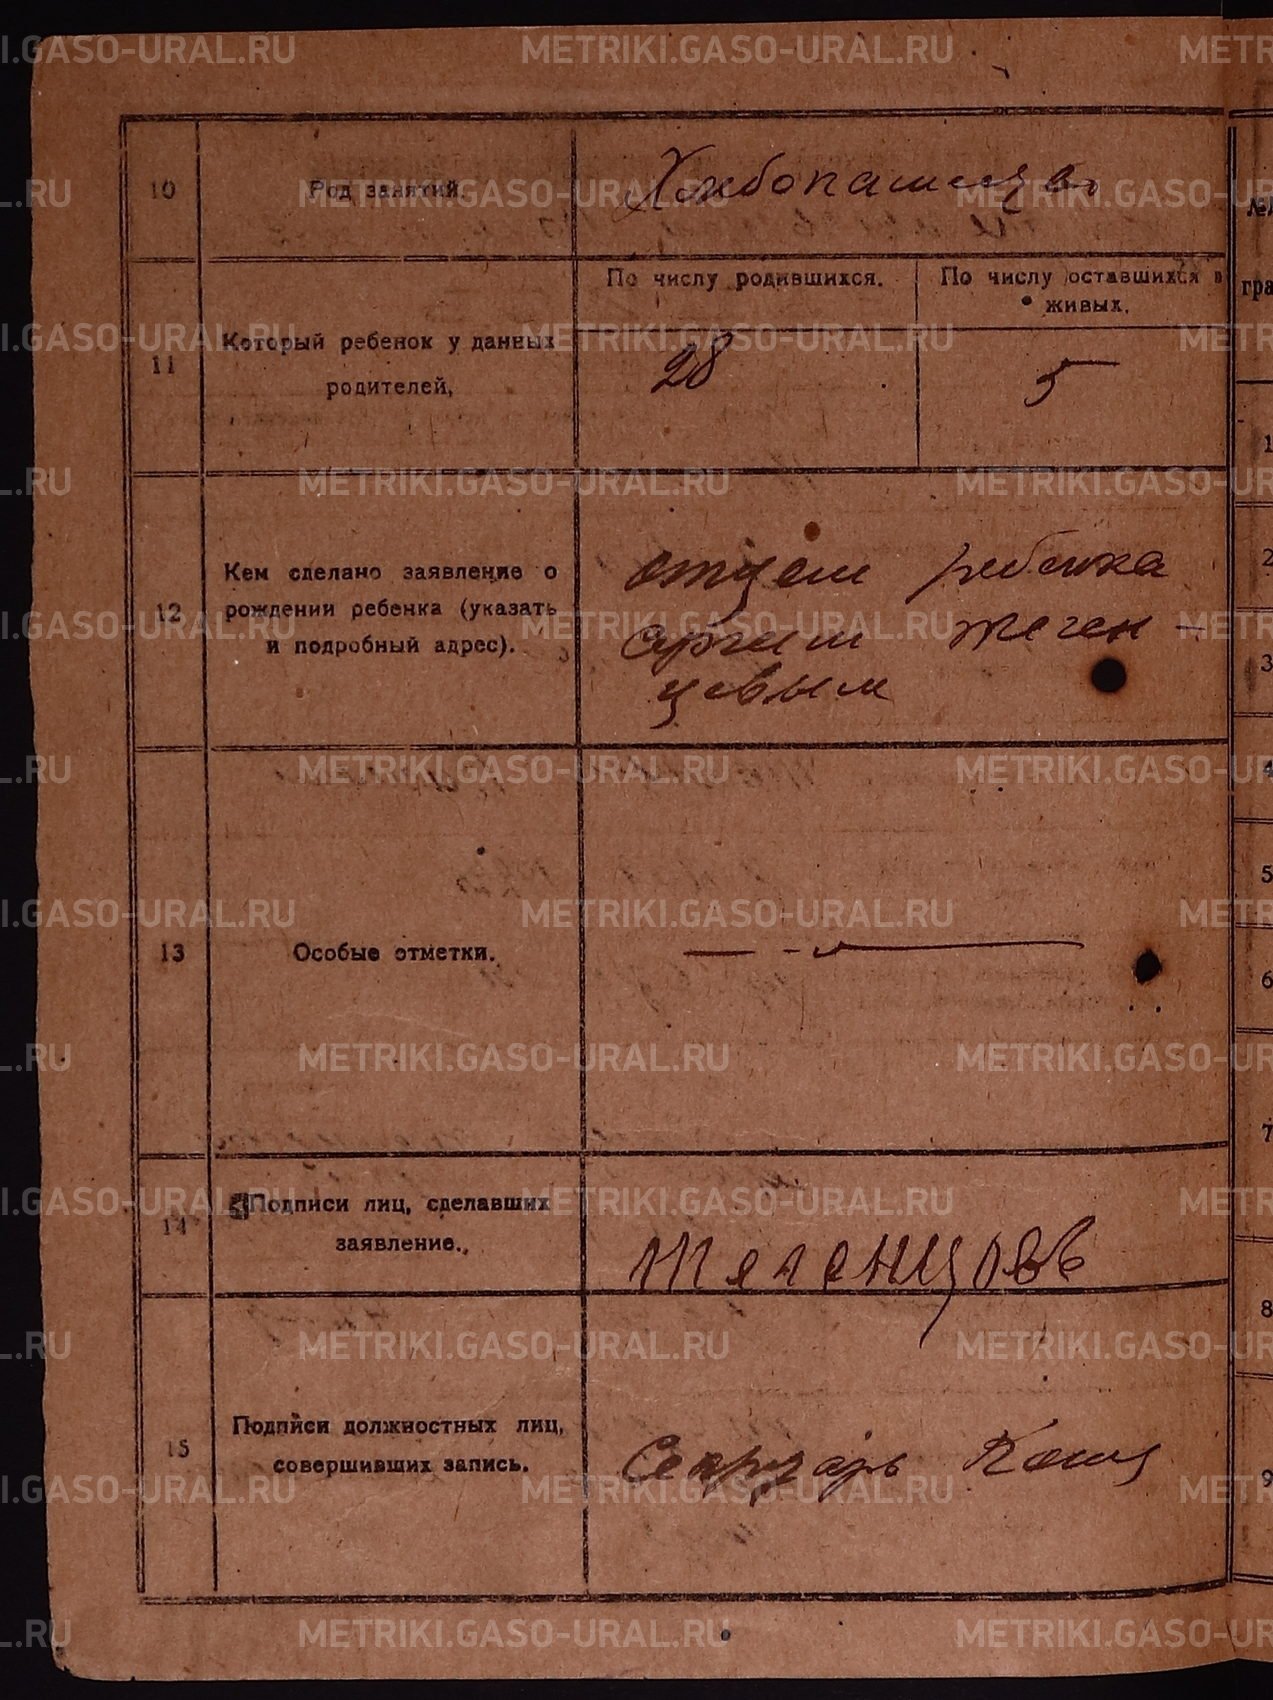 10
Род занятий.
Хлебопашцы
11
Который ребенок у данных
родителей,
По числу родившихся.
По числу оставшихся в
живых.
28
5
12
Кем сделано заявление о
рождении ребенка (указать
и подробный адрес).
отцем ребенка
13
Особые отметки.
14
Подписи лиц, сделавших
заявление.
15
Подписи должностных лиц,
совершивших запись.
Секретарь
1
2
3
4
5
6
7
8
9
METRIKI.GASO-URAL.RU